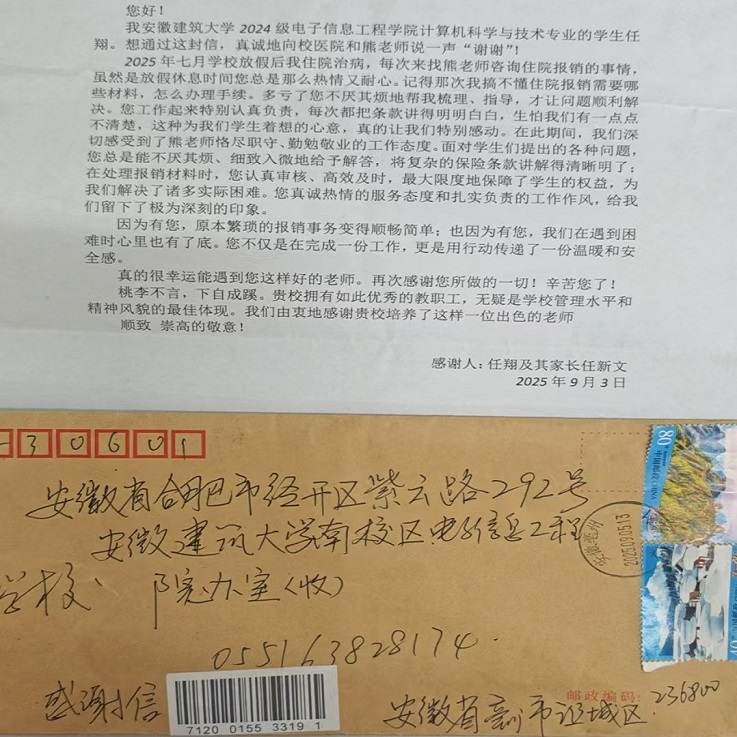 您好！
我安徽建筑大学 2024 级电子信息工程学院计算机科学与技术专业的学生任
翔。想通过这封信，真诚地向校医院和熊老师说一声“谢谢”！
2025 年七月学校放假后我住院治病，每次来找熊老师咨询住院报销的事情，
虽然是放假休息时间您总是那么热情又耐心。记得那次我搞不懂住院报销需要哪
些材料，怎么办理手续。多亏了您不厌其烦地帮我梳理、指导，才让问题顺利解
决。您工作起来特别认真负责，每次都把条款讲得明明白白，生怕我们有一点点
不清楚，这种为我们学生着想的心意，真的让我们特别感动。在此期间，我们深
切感受到了熊老师恪尽职守、勤勉敬业的工作态度。面对学生们提出的各种问题，
您总是能不厌其烦、细致入微地给予解答，将复杂的保险条款讲解得清晰明了；
在处理报销材料时，您认真审核、高效及时，最大限度地保障了学生的权益，为
我们解决了诸多实际困难。您真诚热情的服务态度和扎实负责的工作作风，给我
们留下了极为深刻的印象。
因为有您，原本繁琐的报销事务变得顺畅简单；也因为有您，我们在遇到困
难时心里也有了底。您不仅是在完成一份工作，更是用行动传递了一份温暖和安
全感。
真的很幸运能遇到您这样好的老师。再次感谢您所做的一切！辛苦您了！
桃李不言，下自成蹊。贵校拥有如此优秀的教职工，无疑是学校管理水平和
精神风貌的最佳体现。我们由衷地感谢贵校培养了这样一位出色的老师
顺致 崇高的敬意！
感谢人：任翔及其家长任新文
2025 年 9 月 3 日
230601
80
中国邮政 CHINA
安徽省合肥市经开区紫云路292号
安徽建筑大学南校区电子信息工程
学校 院办室（收）
055163828174
感谢信
7120 0155 3319 1
邮政编码：236800
安徽省亳州市谯城区